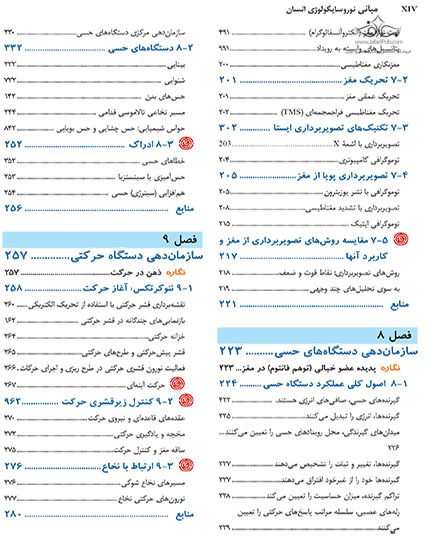 XIV مبانی نوروسایکولوژی انسان
۴۹۱
پتانسیل‌های وابسته به رویداد ۹۹۱
مغزنگاری مغناطیسی ۲۰۰
۷-۲ تحریک مغز ۲۰۱
تحریک عمقی مغز ۲۰۱
تحریک مغناطیسی فراجمجمه‌ای (TMS) ۲۰۲
۷-۳ تکنیک‌های تصویربرداری ایستا ۳۰۲
تصویربرداری با اشعهٔ X 203
توموگرافی کامپیوتری ۲۰۴
۷-۴ تصویربرداری پویا از مغز ۲۰۵
توموگرافی با نشر پوزیترون ۲۰۵
تصویربرداری با تشدید مغناطیسی ۲۰۸
توموگرافی اپتیک ۲۱۵
۷-۵ مقایسه روش‌های تصویربرداری از مغز و
کاربرد آنها ۲۱۷
روش‌های تصویربرداری: نقاط قوت و ضعف ۲۱۸
به سوی تحلیل‌های چند وجهی ۲۱۹
منابع ۲۲۱
فصل ۸
سازمان‌دهی دستگاه‌های حسی ۲۲۳
نگاره پدیده عضو خیالی (توهم فانتوم) در مغز ۲۲۳
۸-۱ اصول کلی عملکرد دستگاه حسی ۲۲۴
گیرنده‌های حسی، صافی‌های انرژی هستند ۴۲۲
گیرنده‌ها، انرژی را تبدیل می‌کنند ۲۲۵
میدان‌های گیرندگی، محل رویدادهای حسی را تعیین می‌کنند
۲۲۶
گیرنده‌ها، تغییر و ثبات را تشخیص می‌دهند ۲۲۷
گیرنده‌ها خود را از غیرخود افتراق می‌دهند ۲۲۷
تراکم گیرنده، میزان حساسیت را تعیین می‌کند ۲۲۸
رله‌های عصبی، سلسله مراتب پاسخ‌های حرکتی را تعیین
می‌کنند ۲۲۹
سازمان‌دهی مرکزی دستگاه‌های حسی ۲۳۰
۸-۲ دستگاه‌های حسی ۳۳۲
بینایی ۲۳۲
شنوایی ۷۳۲
حس‌های بدن ۱۴۲
مسیر نخاعی تالاموسی قدامی ۲۴۴
حواس شیمیایی: حس چشایی و حس بویایی ۸۴۲
۸-۳ ادراک ۲۵۲
خطاهای حسی ۳۵۲
حس‌آمیزی یا سینستزیا ۲۵۳
هم‌افزایی (سینرژی) حسی ۲۵۴
منابع ۲۵۶
فصل ۹
سازمان‌دهی دستگاه حرکتی ۲۵۷
نگاره ذهن در حرکت ۲۵۷
۹-۱ نئوکرتکس: آغاز حرکت ۲۵۸
نقشه‌برداری قشر حرکتی با استفاده از تحریک الکتریکی ۲۶۰
بازنمایی‌های چندگانه در قشر حرکتی ۱۶۲
خزانه حرکتی ۲۶۴
قشر پیش‌حرکتی و طرح‌های حرکتی ۲۶۴
فعالیت نورون قشری حرکتی در طرح ریزی و اجرای حرکات ۲۶۶
حرکت آینه‌ای ۲۶۷
۹-۲ کنترل زیرقشری حرکت ۹۶۲
عقده‌های قاعده‌ای و نیروی حرکت ۲۷۰
مخچه و یادگیری حرکتی ۲۷۲
ساقه مغز و کنترل حرکت ۲۷۴
۹-۳ ارتباط با نخاع ۲۷۶
مسیرهای نخاع شوکی ۶۷۲
نورون‌های حرکتی نخاع ۷۷۲
منابع ۲۸۰